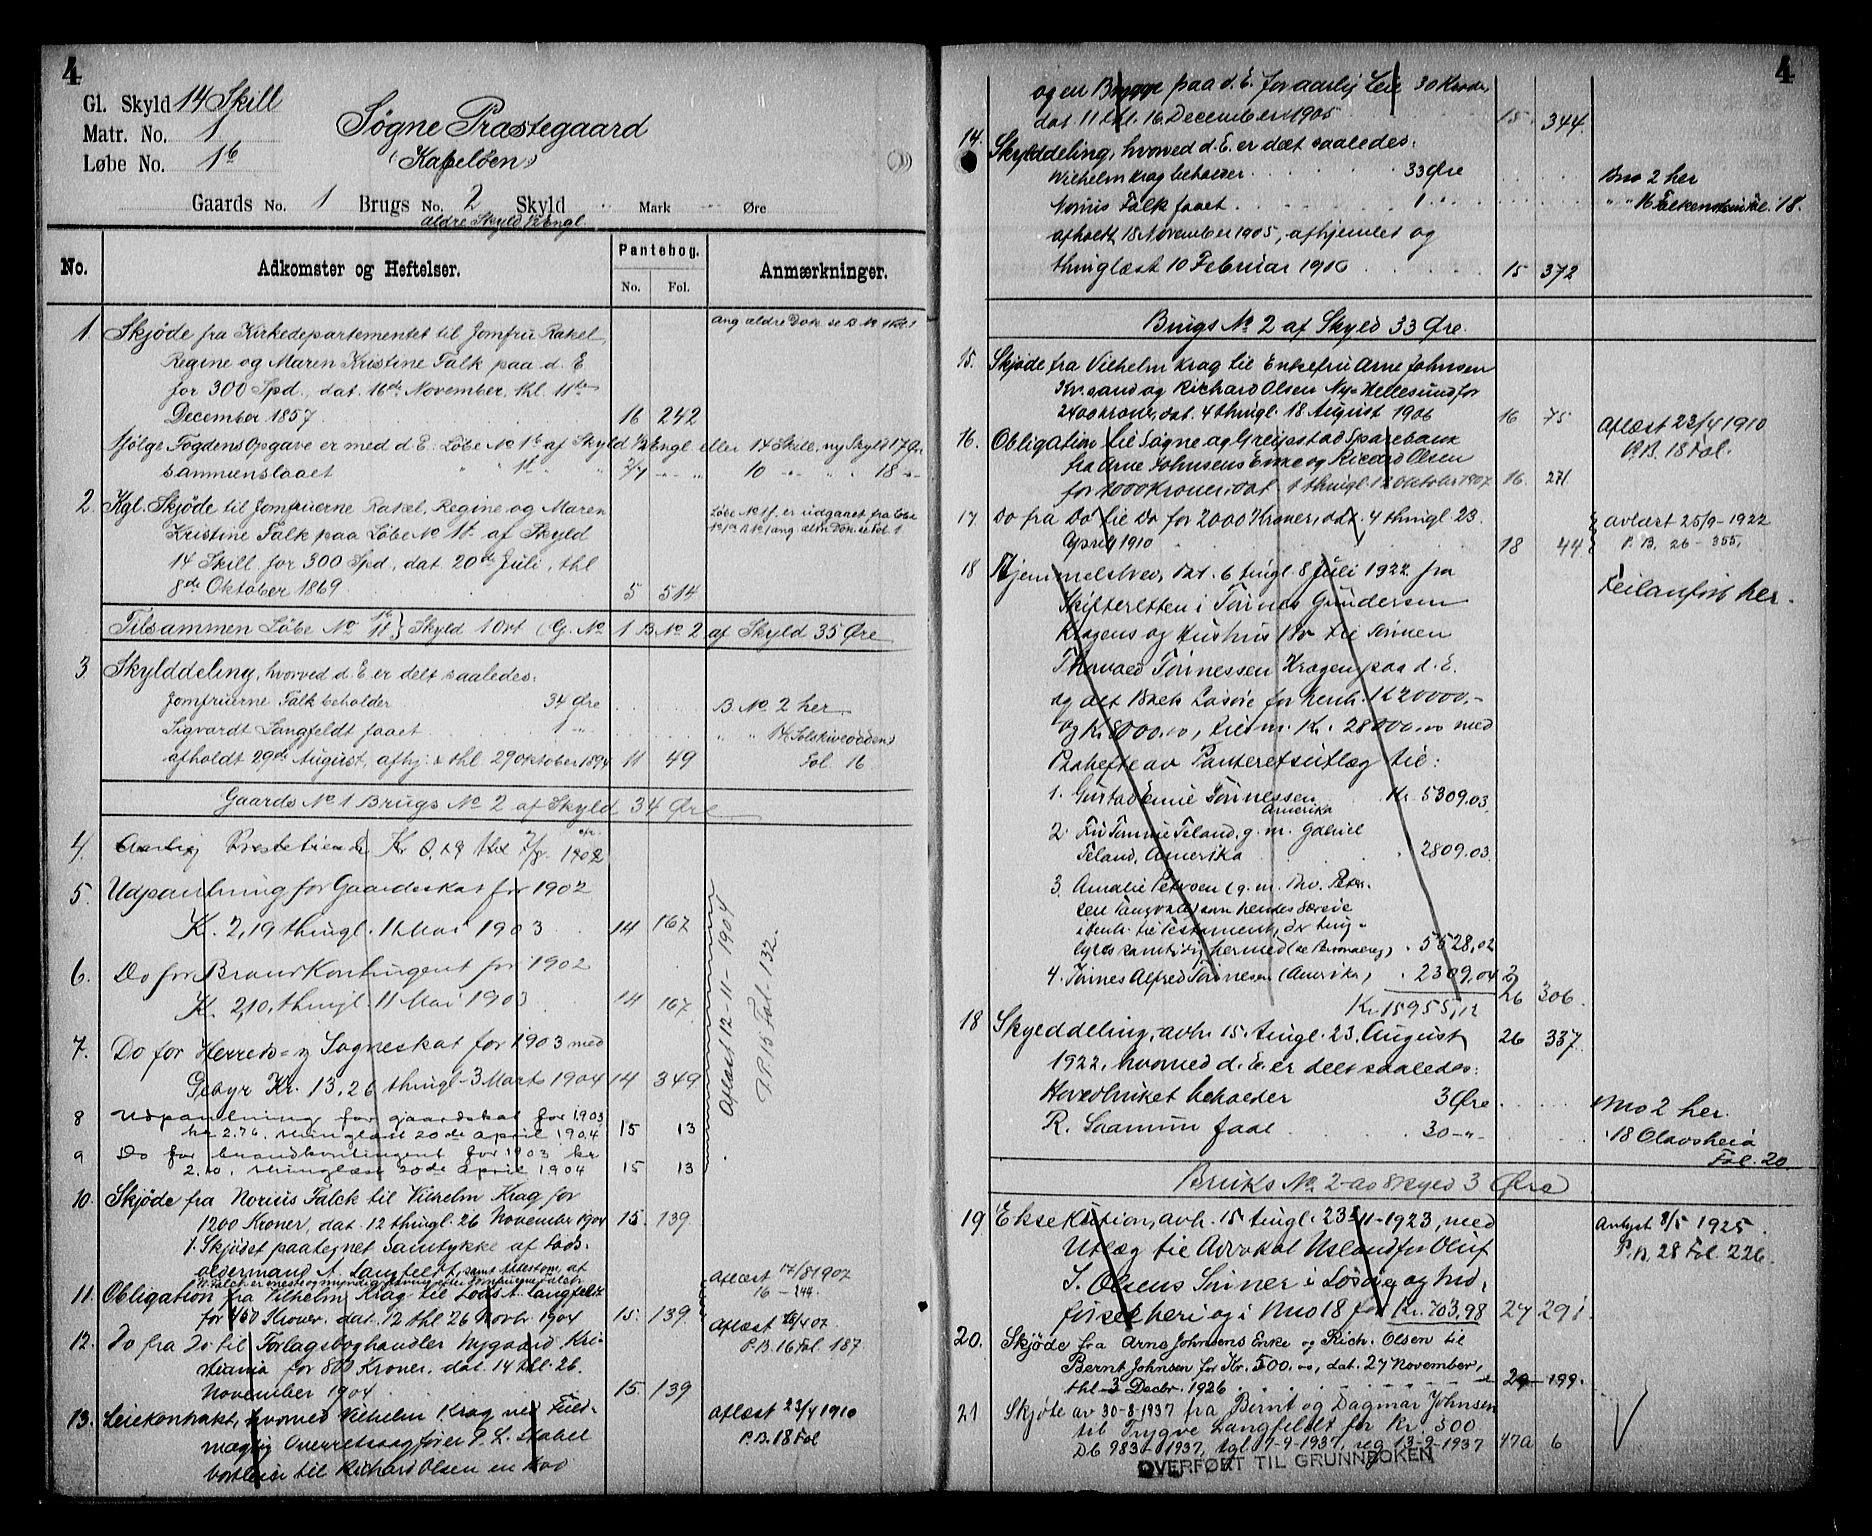 4
Gl. Skyld 14 Skill
Matr. No. 1
Løbe No. 1b
Søgne Præstegaard
(Kapeløen)
Gaards No. 1 Brugs No. 2 Skyld " Mark " Øre
ældre Skyld ½ Engl.
No. Adkomster og Heftelser. Pantebog. No. Fol. Anmærkninger.
1. Skjøde fra Kirkedepartementet til Jomfru Rakel,
Regine og Maren Kristine Falk paa d. E
for 300 Spd, dat. 16de November, thl. 11te
December 1857 16 242
Ang ældre Dok se B. No 1 Fol. 1
Ifølge Fogdens Opgave er med d. E. Løbe No 1b af Skyld ½ Engl. eller 14 Skill, ny Skyld 17 Øre
sammenslaaet " " 1f. " 10 " " 18 "
2. Kgl. Skjøde til Jomfruerne Rakel, Regine og Maren
Kristine Falk paa Løbe No 1f. af Skyld
14 Skill for 300 Spd., dat. 20de Juli, thl
8de Oktober 1869 5 514
Løbe No 1f. er udgaaet fra Løbe
Tilsammen Løbe No 1b 1f } Skyld 1 Ort (G. No 1 B No 2 af Skyld 35 Øre
3 Skylddeling, hvorved d. E er delt saaledes:
Jomfruerne Falk beholder 34 Øre B No 2 her
Sigvardt Langfeldt faaet 1 "
afholdt 29de August, afhj. & thl. 29 Oktober 1894 11 49 Fol. 16
Gaards No 1 Brugs No 2 af Skyld 34 Øre
4. Aarlig
5. Udpantning for Gaardsskat for 1902
K. 2,19 thingl. 11 Mai 1903 14 167
6. Do for Brandkontingent for 1902
K. 2,10, thingl. 11 Mai 1903 14 167
7. Do for Herreds- og Sogneskat for 1903 med
Gebyr Kr. 13,26 thingl. 3 Marts 1904 14 349
8 Udpantning for gaardskat for 1903
kr 2.76. thinglæst 20de april 1904 15 13
9 Do for brandkontingent for 1903 kr
2.10. thinglæst 20de april 1904 15 13
Aflæst 12-11-1904
P.P. 15 Fol. 132.
10. Skjøde fra Norius Falck til Vilhelm Krag for
1200 Kroner, dat. 12 thingl. 26 November 1904 15. 139.
I. Skjødet paategnet samtykke af Lods-
oldermand A. Langfeldt, samt attestom, at
11. Obligation fra Vilhelm Krag til Lods A. Langfeldt
for 450 Kroner. dat. 12 thl. 26 Novbr. 1904 15. 139.
Aflæst 17/8 1907
16 - 144.
12. Do fra Do til Forlagsboghandler Nygaard Kri-
stiania for 800 Kroner, dat. 14 thl. 26.
November 1904. 15. 139
P.B. 16 Fol. 187
13. Leiekontrakt, hvorved Vilhelm Krag ved Fuld-
mægtig Overretssagfører P. L. Stabel
bortleier til Richard Olsen en Bod
Aflæst 23/4 1910
P.B. 18 Fol
4
og en Brygge paa d. E. for aarlig Leie 30 Kroner,
dat. 11 thl. 16 December 1905 15. 344.
14. Skylddeling, hvorved d. E. er delt saaledes:
Wilhelm Krag beholder 33 Øre Bno 2 her
Norius Falk faaet 1 " 18.
afholdt 18 November 1905, afhjemlet og
thinglæst 10 Februar 1906 15 372
Brugs No 2 af Skyld 33 Øre.
15. Skjøde fra Vilhelm Krag til Enkefru Arne Johnsen
Kr.sand og Richard Olsen Ny-Hellesund for
2400 Kroner, dat. 4 thingl. 18 August 1906 16 75
16. Obligation til Søgne og Greipstad Sparebank
fra Arne Johnsens Enke og Ricard Olsen
for 2000 Kroner, dat 1 thingl. 12 Oktober 1907 16. 271.
Aflæst 23/4 1910
P.B. 18 Fol.
17. Do fra Do til Do for 2000 Kroner, dat. 4 thingl 23.
April 1910 18 44
avlæst 25/9-1922
P.B. 26 - 355,
18 Hjemmelsbrev, dat. 6 tingl 8 Juli 1922 fra
Skifteretten i Tønnes Gundersen
Kragens og Hustrus Bo til Sønnen
Thorvald Tønnessen Kragen paa d. E.
og det 18 . . . for henh. K 20000,-
og Kr. 8000.00, tils m. Kr. 28000.00 med
Paahefte av Panteretsutlæg til:
1. Gustav Emil Tønnessen Amerika Kr. 5309.03
2. Fru Tomine Teland, g. m. Gabriel
Teland, Amerika " 2809.03.
3. Amalie Petersen (g. m. Thv. Peter-
sen Tangvald) som hendes Særeie
i henh. til Testament, der ting-
lyses samtidig hermed (se Personalreg) " 5528,02
4. Tønnes Alfred Tønnesen (Amerika) " 2309,04
Kr. 15955,12 26 306.
Feilanført her.
18 Skylddeling, avh. 15. tingl. 23. August 26 337.
1922, hvorved d. E. er delt saaledes:
Hovedbruket beholder 3 Øre Bno 2 her.
R. Saamun faat 30 " 18 Olavsheia
Fol. 20
Bruks No 2 av Skyld 3 Øre
19. Eksekution, avh. 15. tingl. 23-11-1923, med
Utlæg til Advokat Usland for Oluf
I. Olsens Sønner i
heri og i Bno 18 for Kr. 703,98 27 291
Avlyst 8/5 1925.
P.B. 28 Fol. 226.
20. Skjøde fra Arne Johnsens Enke og Rich. Olsen til
Bernt Johnsen for Kr. 500.00, dat. 27 November,
thl 3 Decbr. 1926 29 199.
21 Skjøte av 30-8-1937 fra Bernt og Dagmar Johnsen
til Trygve Langfeldt for kr. 500
Db 983-1937, tgl 7-9-1937, reg 13-9-1937 47A 6
OVERFØRT TIL GRUNNBOKEN